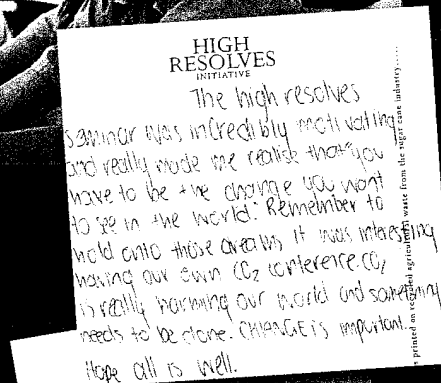 HIGH
RESOLVES
INITIATIVE
The high resolves
seminar was incredibly motivating
and really made me realise that "you
have to be the change you want
to see in the world." Remember to
hold onto those dreams it was interesting
having our own CO2 conference. CO2
is really harming our world and something
needs to be done. CHANGE is important.
Hope all is well.
printed on recycled agricultural waste from the sugar cane industry.....